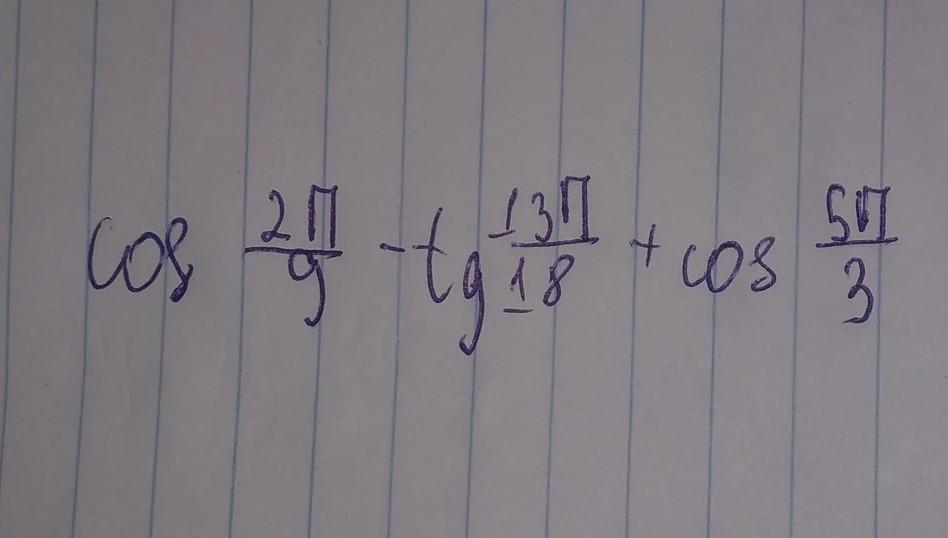 cos 2π/9 - tg 13π/18 + cos 5π/3